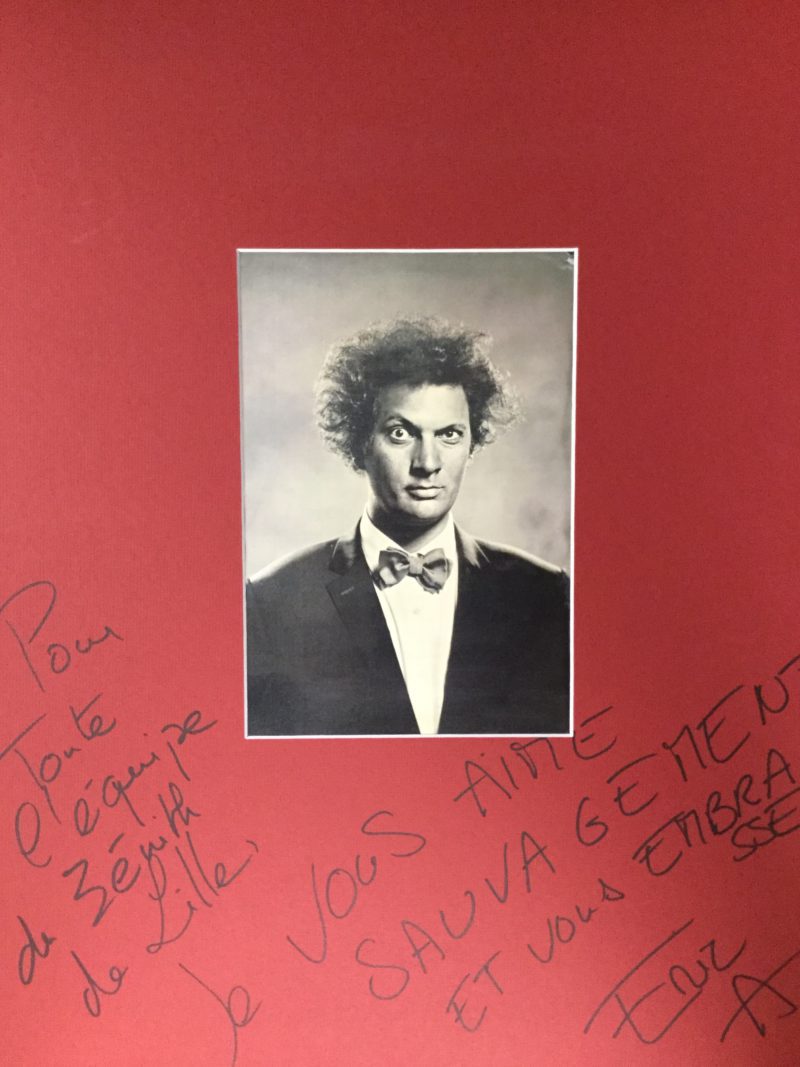 Pour
Toute
l'équipe
du Zénith
de Lille,
Je VOUS AIME
SAUVAGEMENT
ET VOUS EMBRA
SSE
ERIC
A